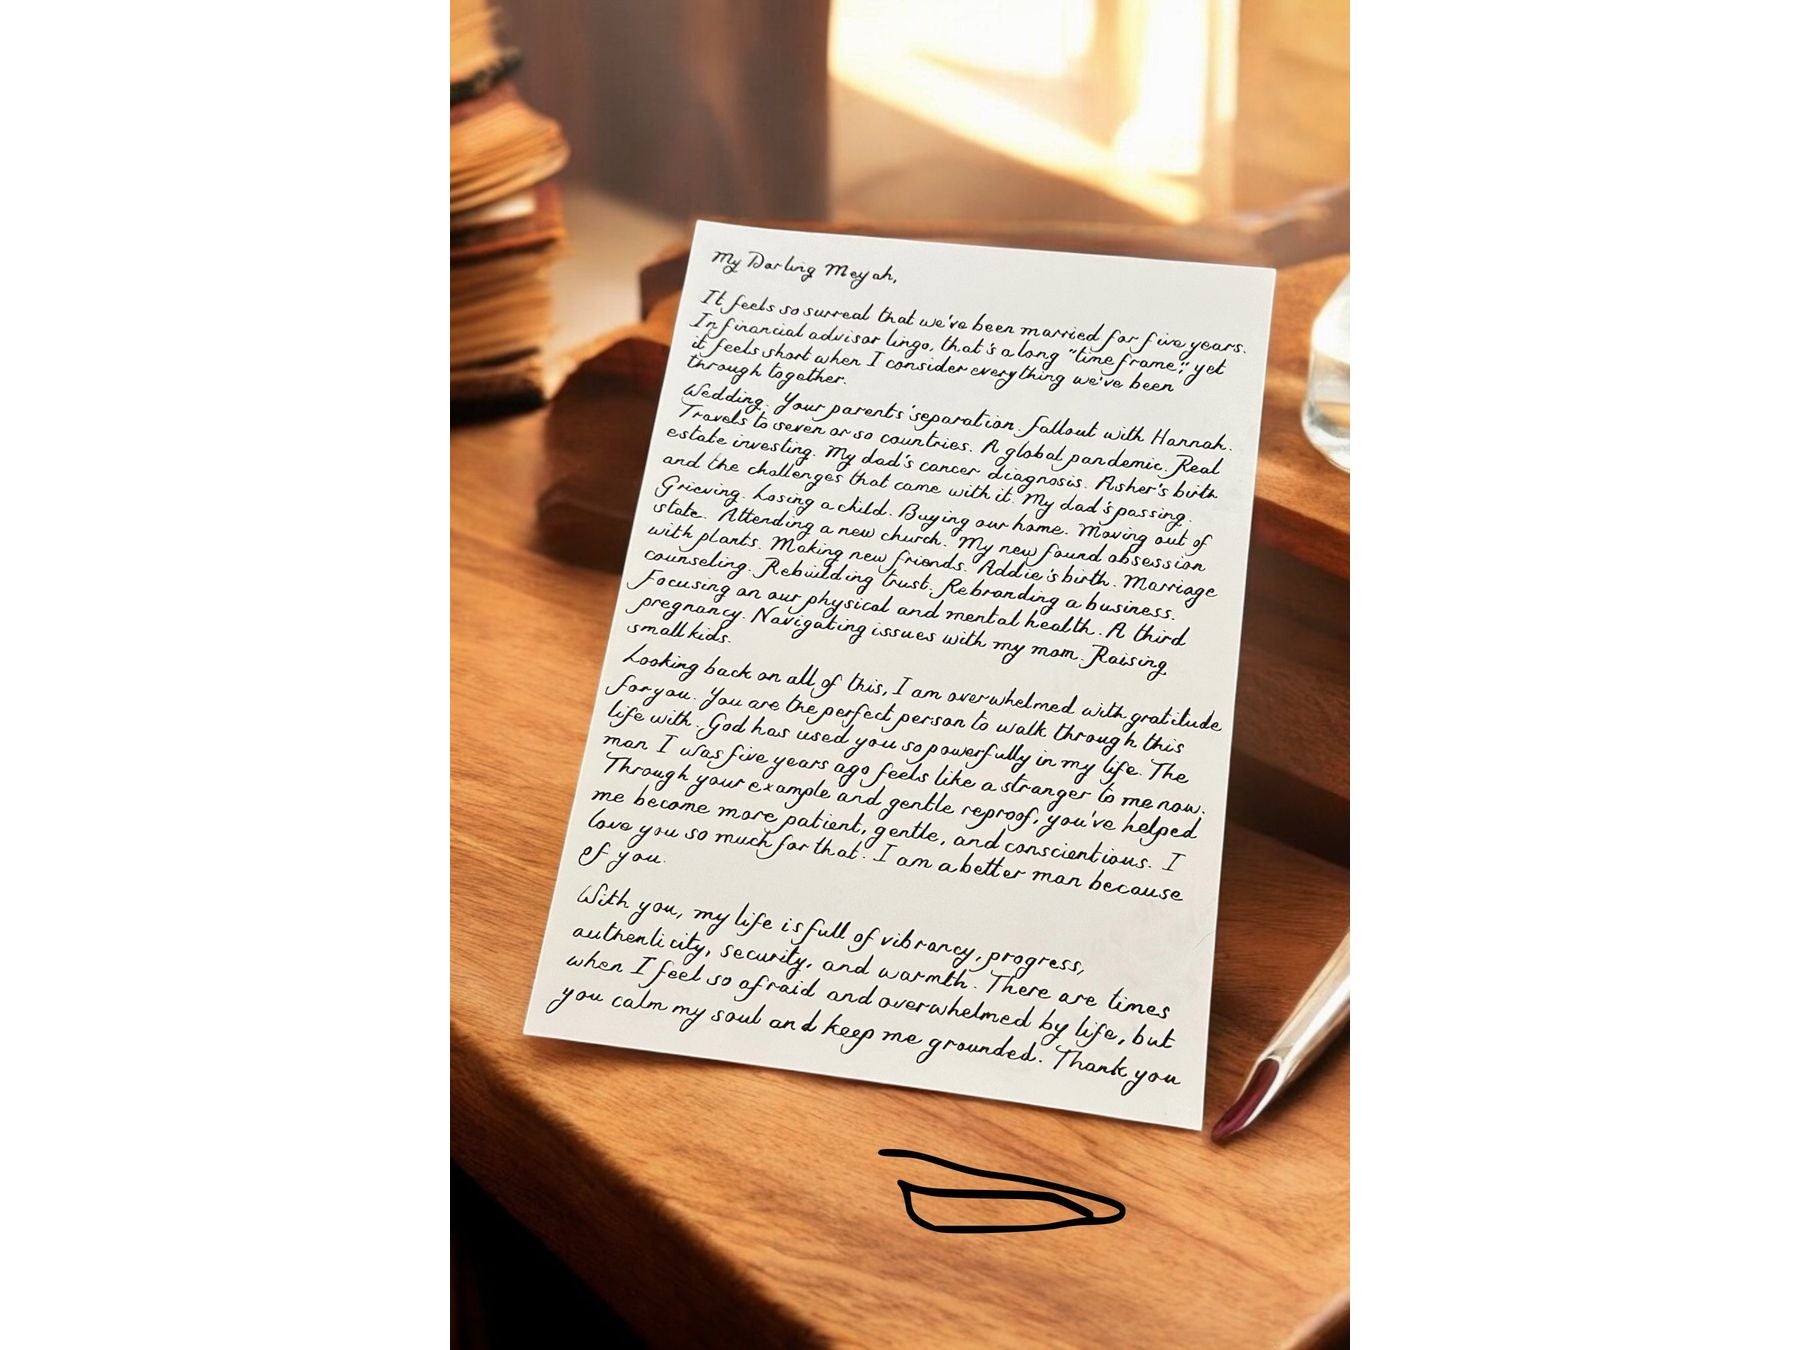 My Darling Meyah,
It feels so surreal that we've been married for five years.
In financial advisor lingo, that's a long "time frame", yet
it feels short when I consider everything we've been
through together.
Wedding. Your parents' separation. Fallout with Hannah.
Travels to seven or so countries. A global pandemic. Real
estate investing. My dad's cancer diagnosis. Asher's birth
and the challenges that came with it. My dad's passing.
Grieving. Losing a child. Buying our home. Moving out of
state. Attending a new church. My new found obsession
with plants. Making new friends. Addie's birth. Marriage
counseling. Rebuilding trust. Rebranding a business.
Focusing on our physical and mental health. A third
pregnancy. Navigating issues with my mom. Raising
small kids.
Looking back on all of this, I am overwhelmed with gratitude
for you. You are the perfect person to walk through this
life with. God has used you so powerfully in my life. The
man I was five years ago feels like a stranger to me now.
Through your example and gentle reproof, you've helped
me become more patient, gentle, and conscientious. I
love you so much for that. I am a better man because
of you.
With you, my life is full of vibrancy, progress,
authenticity, security, and warmth. There are times
when I feel so afraid and overwhelmed by life, but
you calm my soul and keep me grounded. Thank you